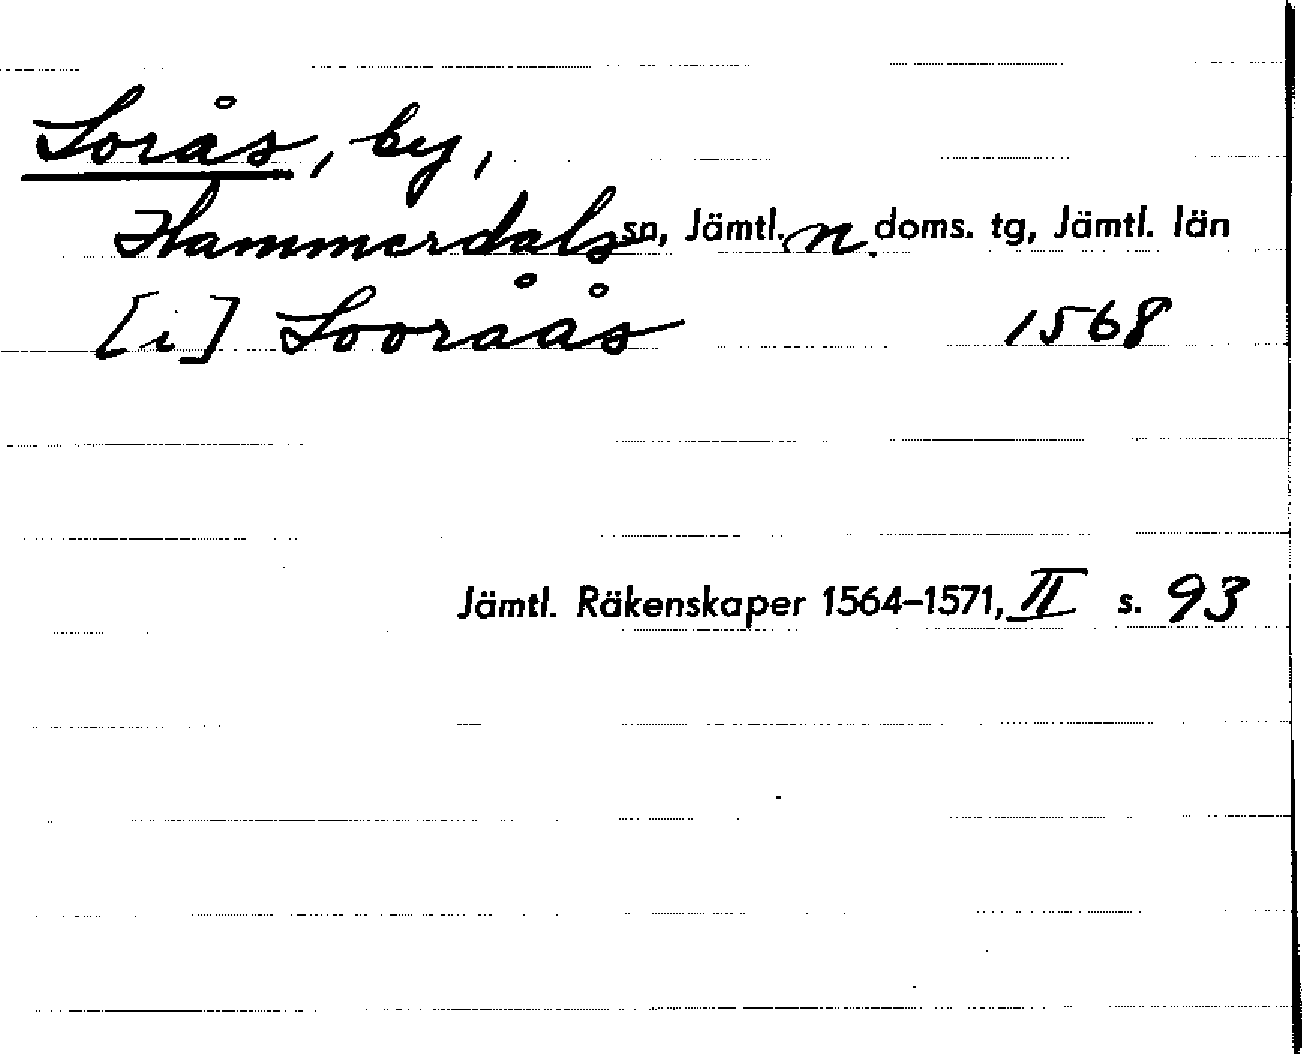 Sorås, by,
Hammerdals sn, Jämtl. n. doms. tg, Jämtl. län
[i] Sooråås 1568
Jämtl. Räkenskaper 1564-1571, II s. 93